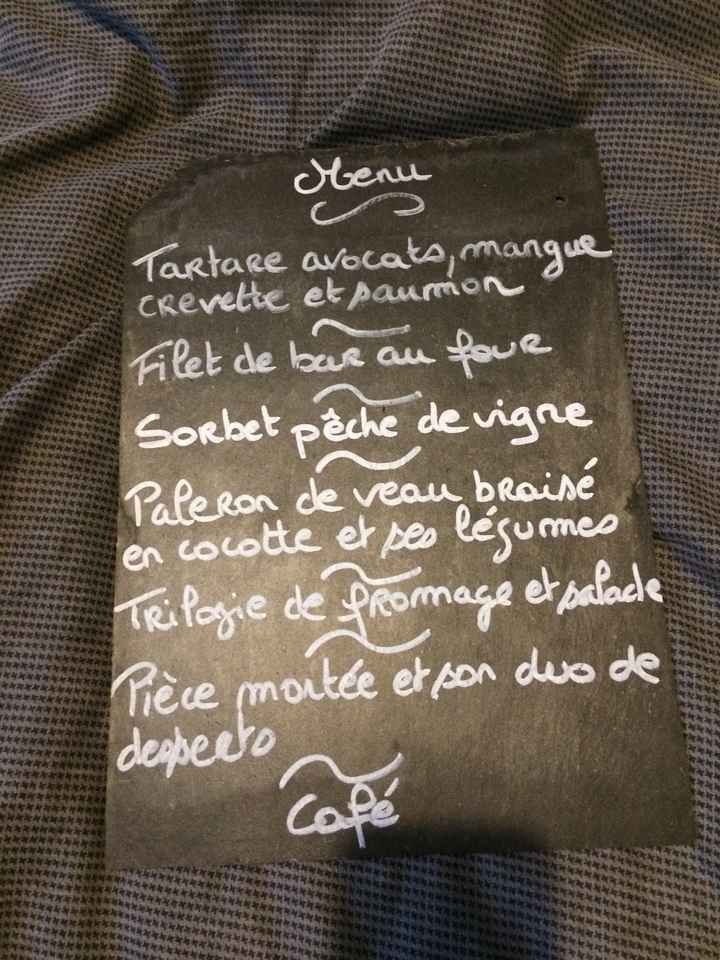 Menu
Tartare avocats, mangue
crevette et saumon
Filet de bar au four
Sorbet pêche de vigne
Paleron de veau braisé
en cocotte et ses légumes
Trilogie de fromage et salade
Pièce montée et son duo de
desserts
Café